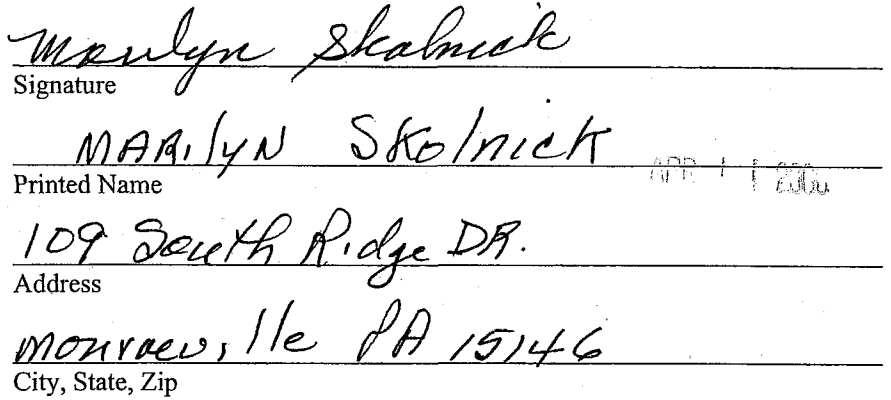 Marilyn Skolnick
Signature
MARilyN SKolnick
APR 11 2006
Printed Name
109 South Ridge DR.
Address
Monroeville PA 15146
City, State, Zip